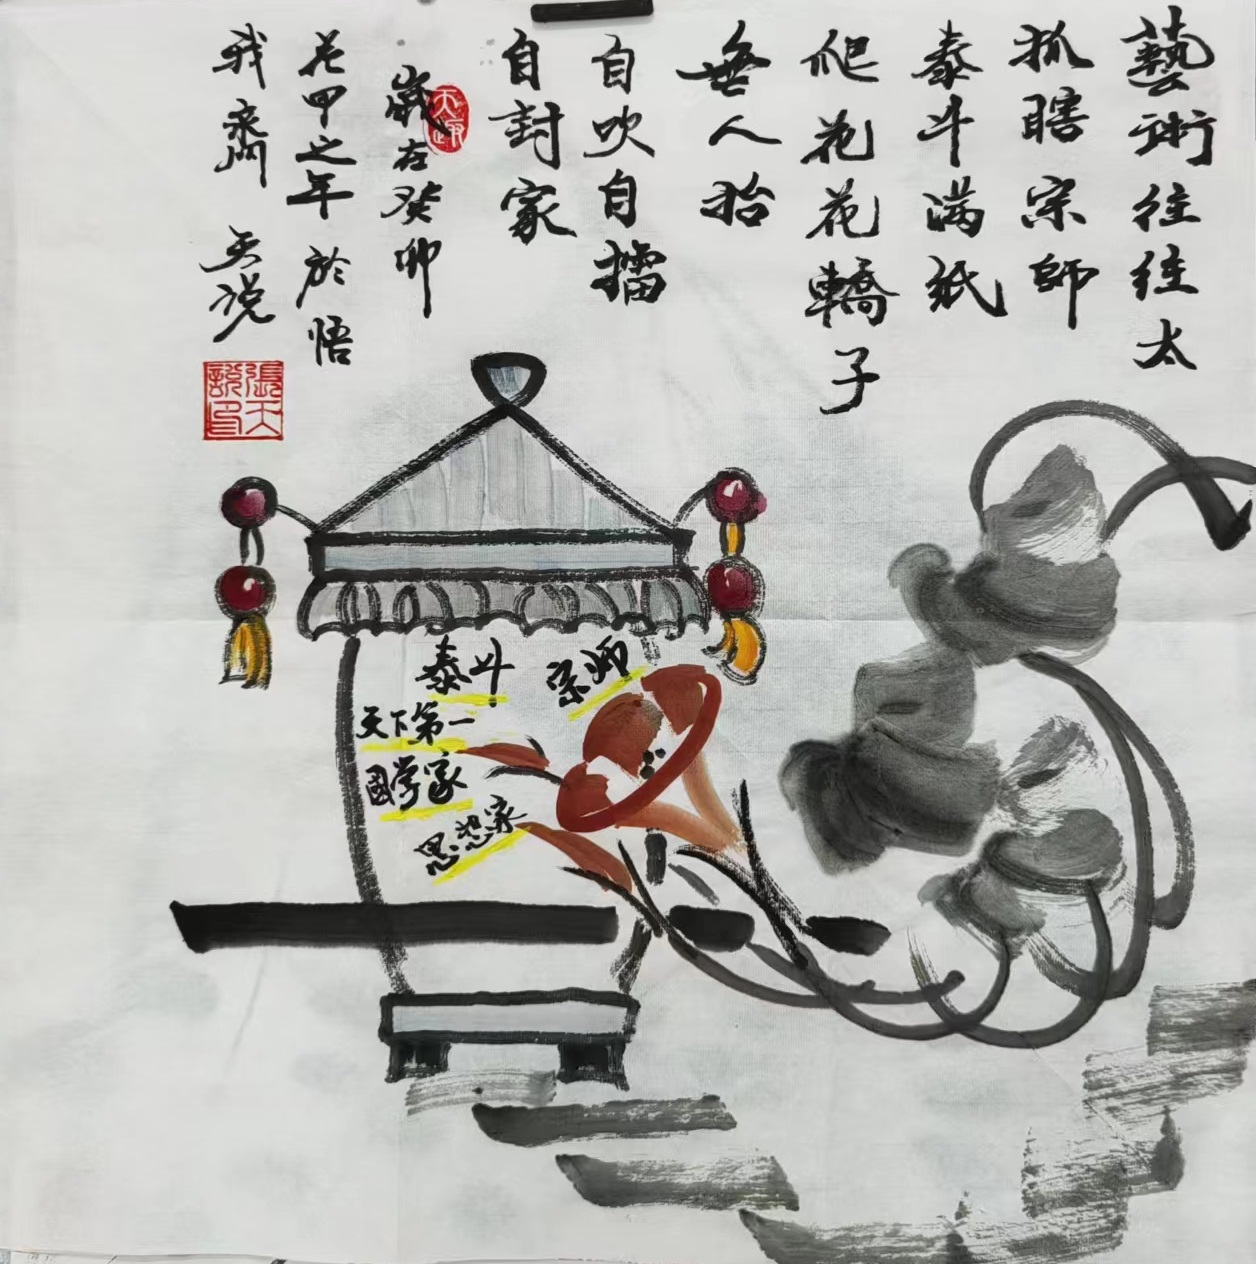 藝術往往太
抓瞎宗師
泰斗满紙
爬花花轎子
無人抬
自吹自擂
自封家
歲在癸卯
花甲之年於悟
我齋 天说
張天說印
泰斗
宗师
天下第一
國学家
思想家